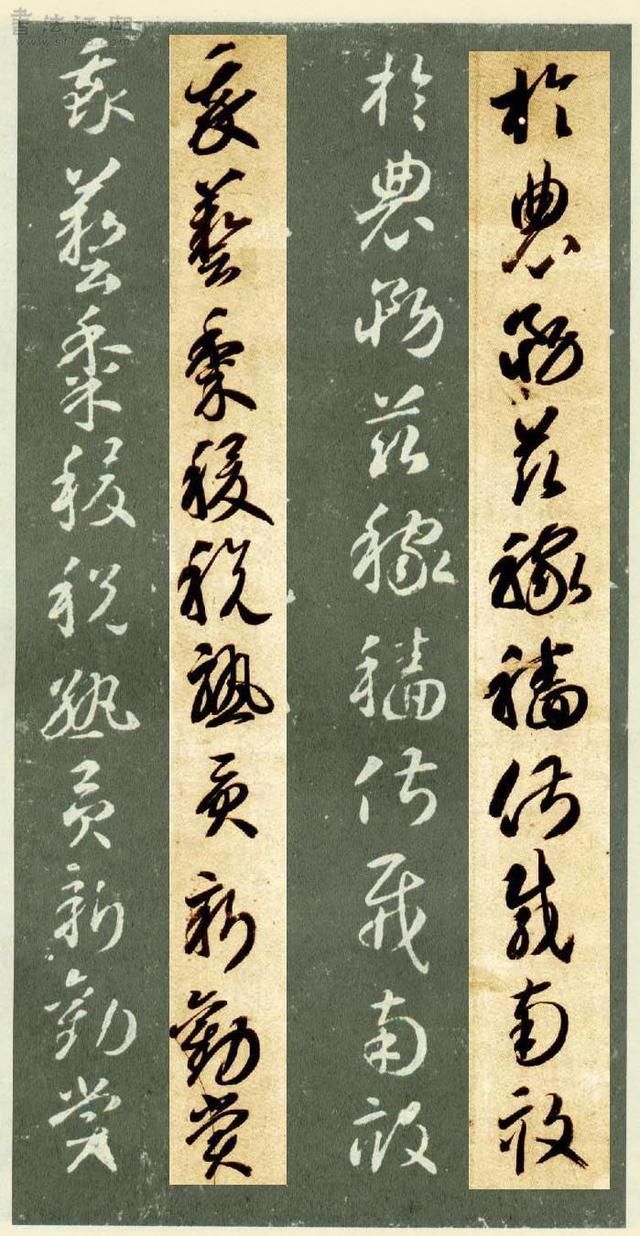 於農務兹稼穡俶載南畝
於農務兹稼穡俶載南畝
我藝黍稷稅熟貢新勸賞
我藝黍稷稅熟貢新勸賞
書法江湖